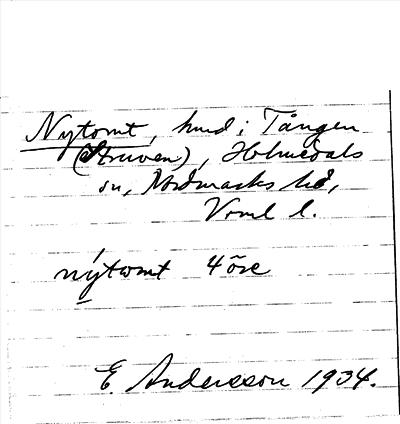 Nytomt, hmd i Tången
(Skruven), Holmedals
sn, Nordmarks hd,
Vrml l.
nýtomt 4 öre
E. Andersson 1934.